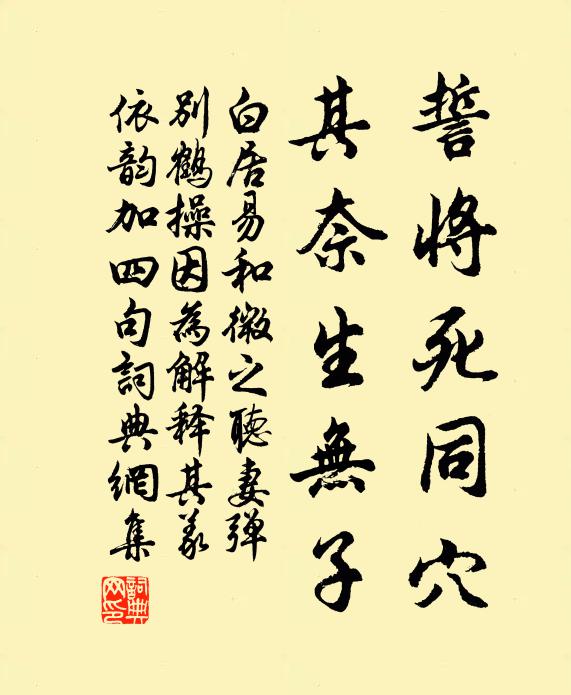 誓將死同穴
其奈生無子
白居易和微之聽妻彈
別鶴操因為解釋其義
依韵加四句詞典網集
詞典
网印